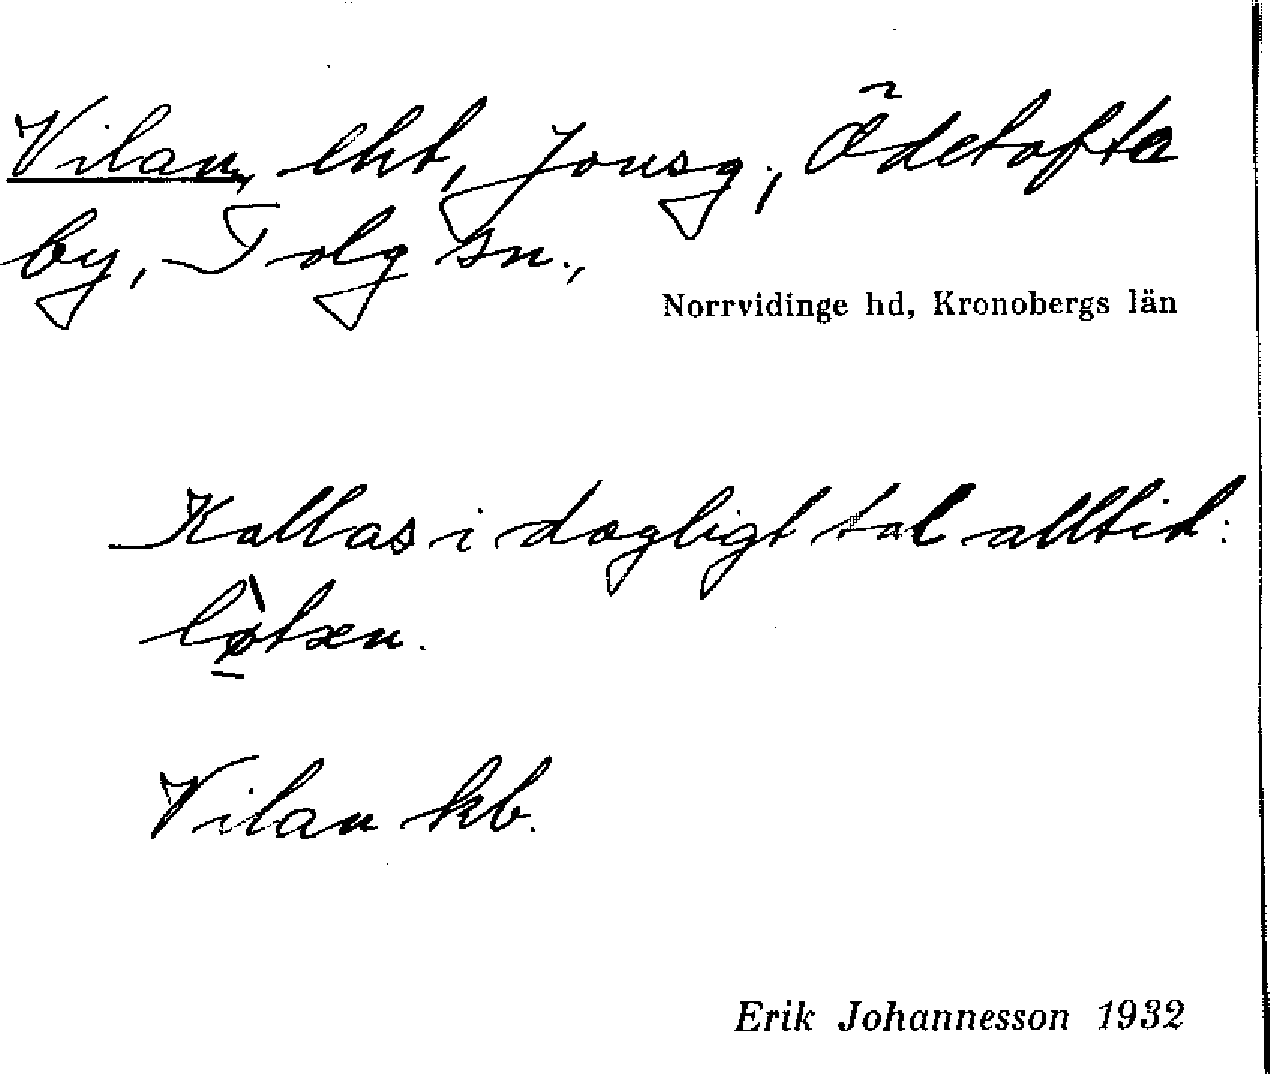 Vilan, lht, Jonsg., Ödetofta
by, Tolg sn.,
Norrvidinge hd, Kronobergs län
Kallas i dagligt tal alltid:
Vilan kb.
Erik Johannesson 1932